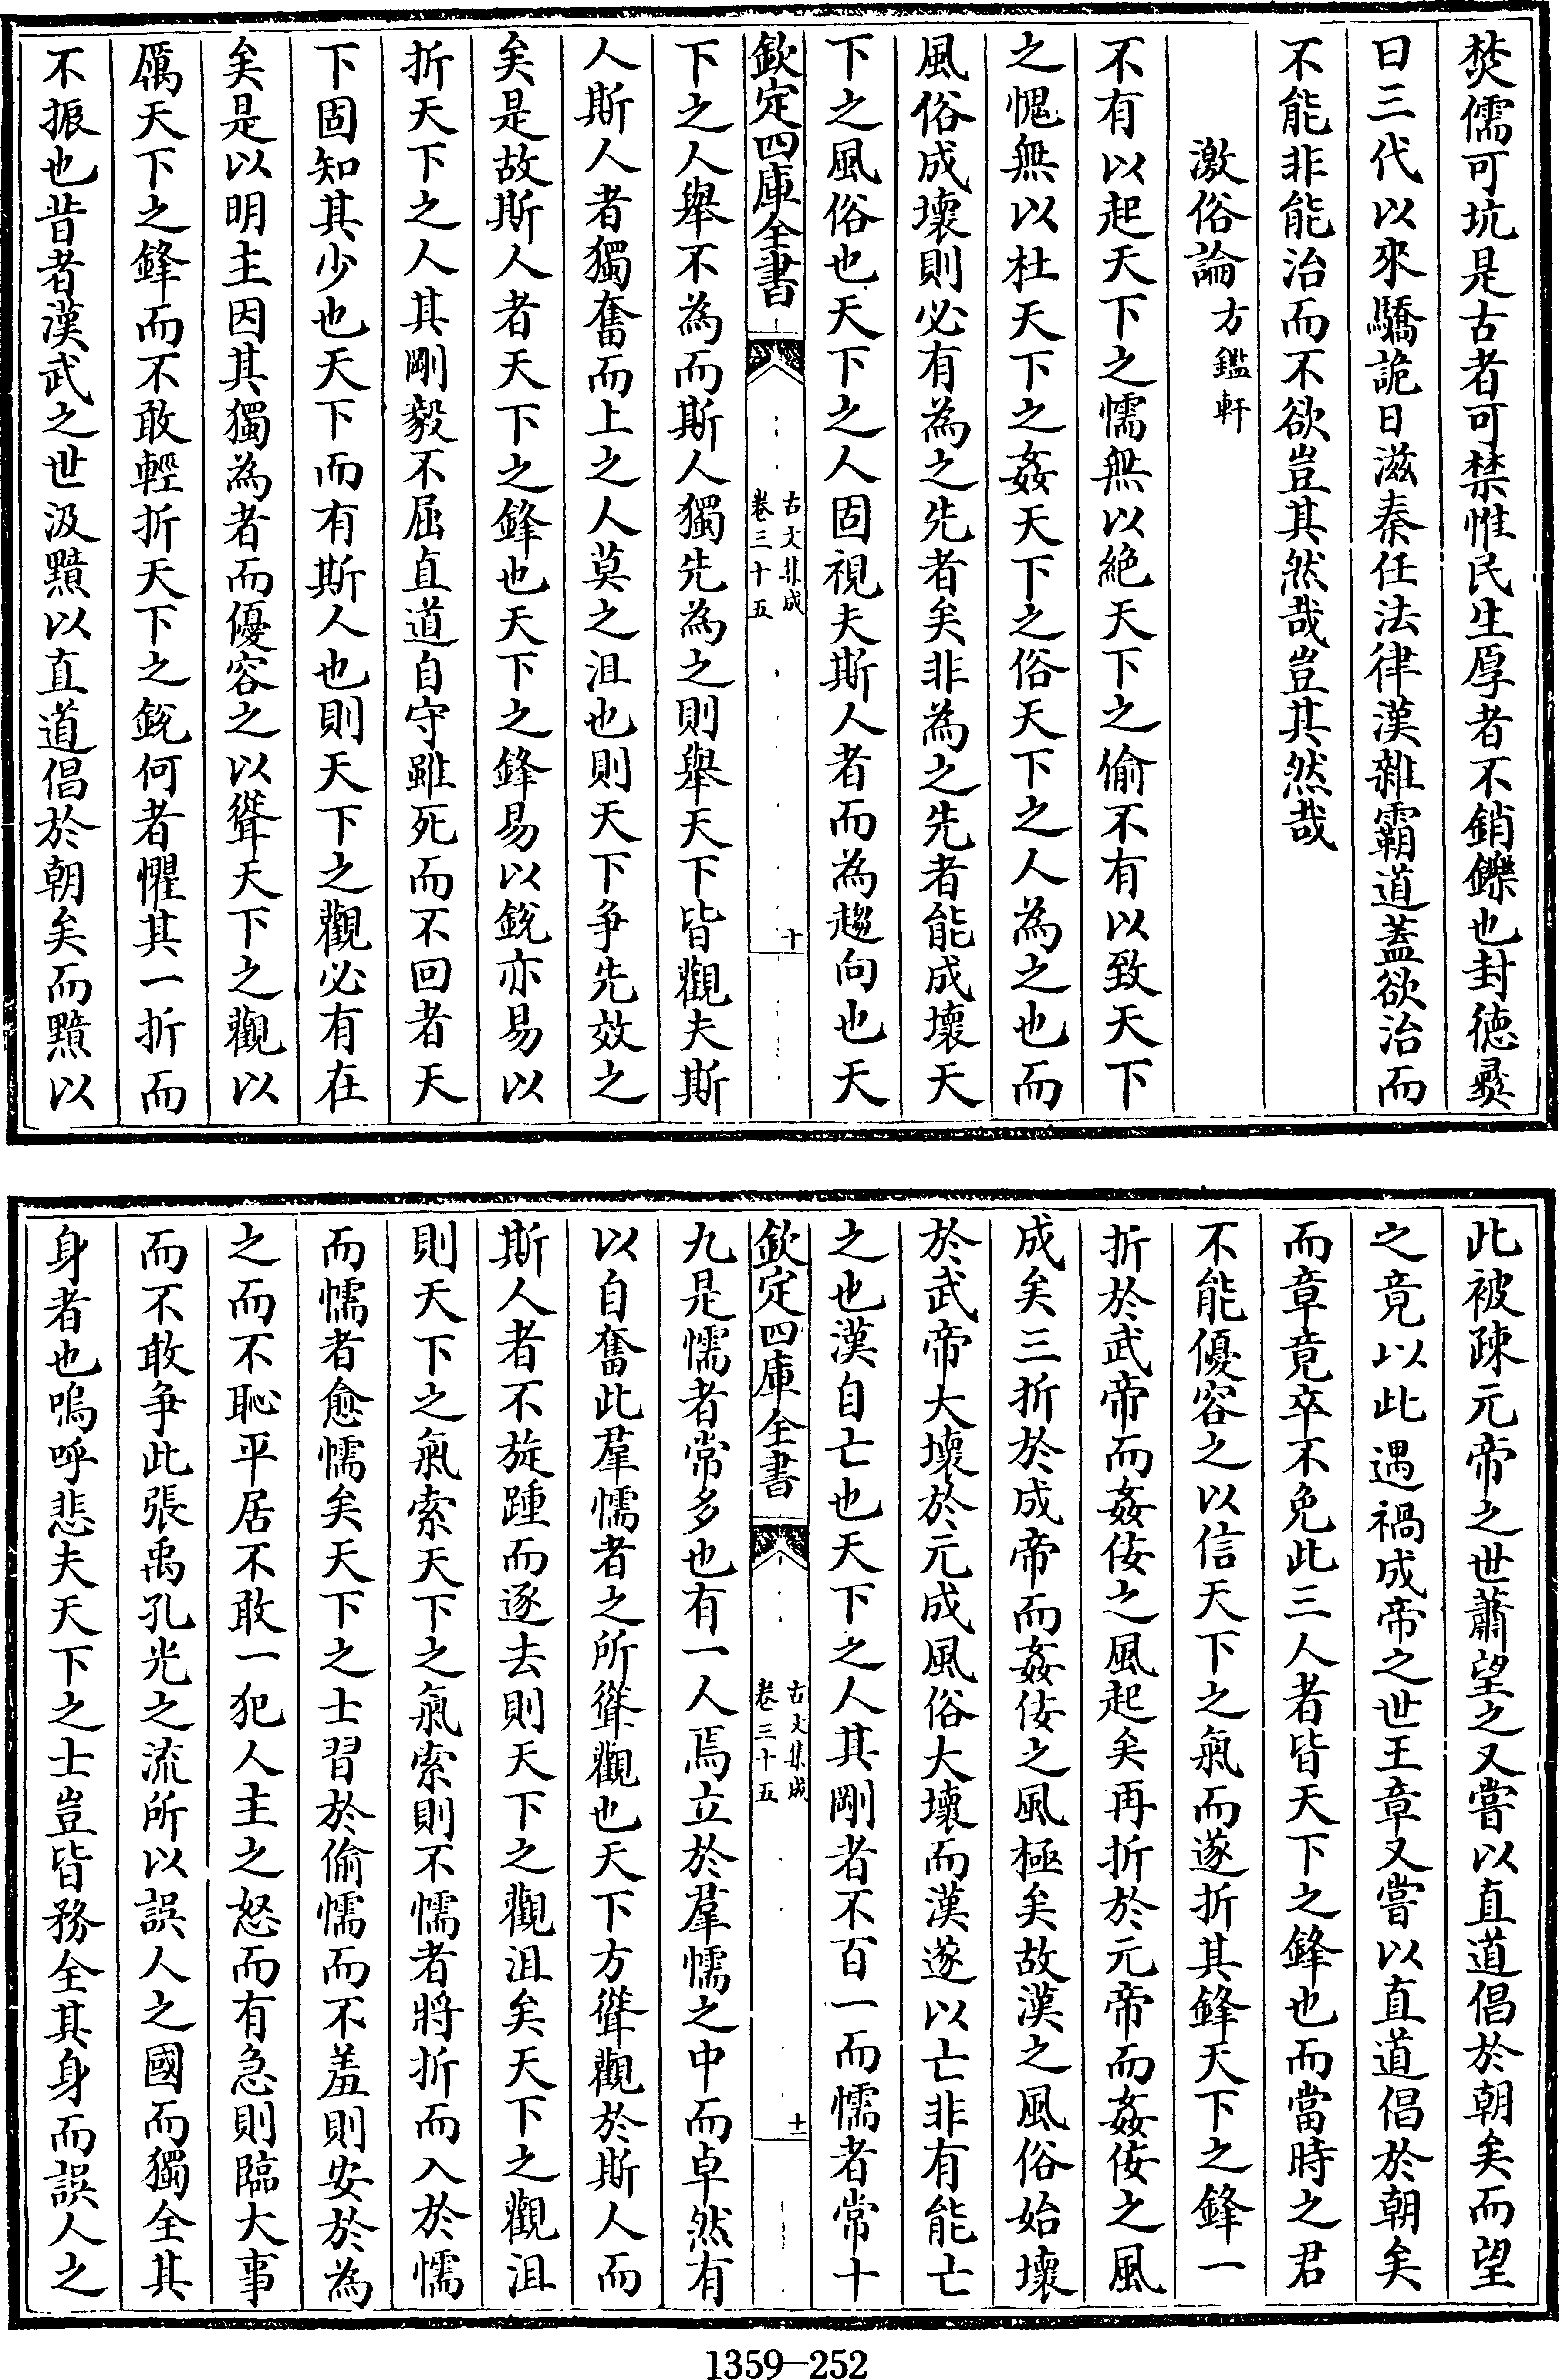 焚儒可坑是古者可禁惟民生厚者不銷鑠也封徳彛
曰三代以來驕詭日滋秦任法律漢雜霸道蓋欲治而
不能非能治而不欲豈其然哉豈其然哉
激俗論 方鑑軒
不有以起天下之懦無以絶天下之偷不有以致天下
之愧無以杜天下之姦天下之俗天下之人為之也而
風俗成壞則必有為之先者矣非為之先者能成壞天
下之風俗也天下之人固視夫斯人者而為趨向也天
欽定四庫全書
古文集成
卷三十五
十
下之人舉不為而斯人獨先為之則舉天下皆觀夫斯
人斯人者獨奮而上之人莫之沮也則天下争先效之
矣是故斯人者天下之鋒也天下之鋒易以鋭亦易以
折天下之人其剛毅不屈直道自守雖死而不回者天
下固知其少也天下而有斯人也則天下之觀必有在
矣是以明主因其獨為者而優容之以聳天下之觀以
厲天下之鋒而不敢輕折天下之鋭何者懼其一折而
不振也昔者漢武之世汲黯以直道倡於朝矣而黯以
此被疎元帝之世蕭望之又嘗以直道倡於朝矣而望
之竟以此遇禍成帝之世王章又嘗以直道倡於朝矣
而章竟卒不免此三人者皆天下之鋒也而當時之君
不能優容之以信天下之氣而遂折其鋒天下之鋒一
折於武帝而姦佞之風起矣再折於元帝而姦佞之風
成矣三折於成帝而姦佞之風極矣故漢之風俗始壞
於武帝大壞於元成風俗大壞而漢遂以亡非有能亡
之也漢自亡也天下之人其剛者不百一而懦者常十
欽定四庫全書
古文集成
卷三十五
十一
九是懦者常多也有一人焉立於羣懦之中而卓然有
以自奮此羣懦者之所聳觀也天下方聳觀於斯人而
斯人者不旋踵而逐去則天下之觀沮矣天下之觀沮
則天下之氣索天下之氣索則不懦者將折而入於懦
而懦者愈懦矣天下之士習於偷懦而不羞則安於為
之而不恥平居不敢一犯人主之怒而有急則臨大事
而不敢争此張禹孔光之流所以誤人之國而獨全其
身者也嗚呼悲夫天下之士豈皆務全其身而誤人之
1359—252